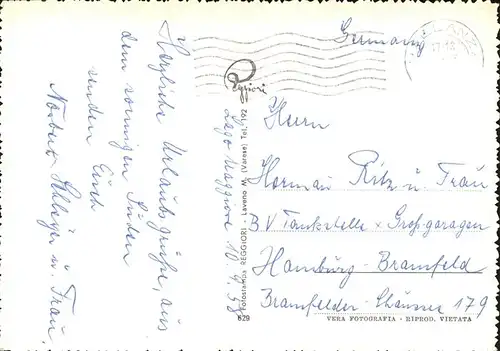 Lago Maggiore 10.9.58
Herzliche Urlaubsgrüße, aus
dem sonnigen Süden
senden Euch
Norbert u. Frau.
Germany
Herrn
Herman Ritz u. Frau
B.V Tankstelle & Großgaragen
Hamburg-Bramfeld
Bramfelder-Chaussee 179
Reggiori
Fotostampa REGGIORI - Laveno M. (Varese) Tel. 192
629
VERA FOTOGRAFIA - RIPROD. VIETATA